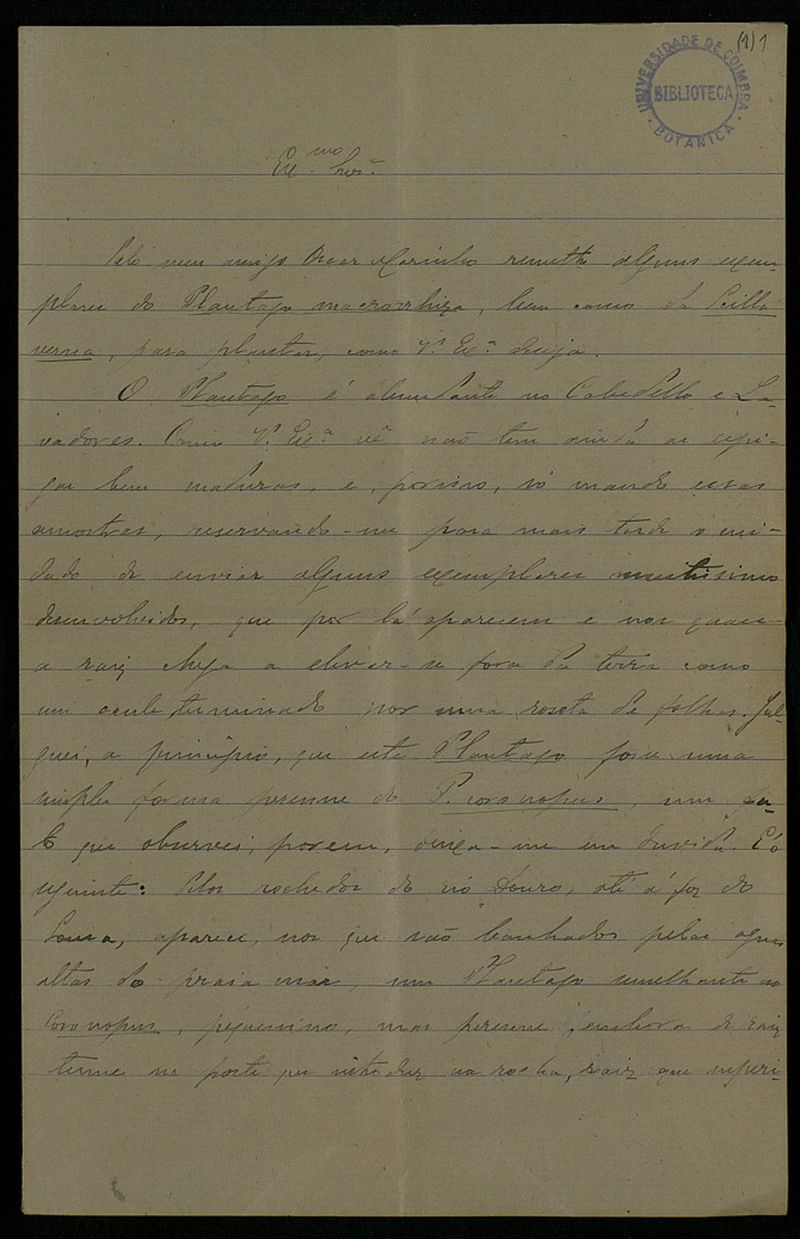 (1) 1
UNIVERSIDADE DE COIMBRA
BIBLIOTECA
BOTANICA
Ex.mo Snr.
Pelo meu amigo Oscar Marinho remetto alguns exem-
plares do Plantago macrorhiza, bem como da Scilla
verna, para plantar, como V.ª Ex.ª deseja.
O Plantago é abundante no Cabedello e La-
vadores. Como V.ª Ex.ª vê não tem ainda as espi-
gas bem maduras, e, por isso, só mando essas
amostras, reservando-me para mais tarde o cui-
dado de enviar alguns exemplares muitissimo
desenvolvidos, que por lá apparecem e nos quaes
a raiz chega a elevar-se fora da terra como
um caule terminado por uma roseta de folhas. Jul-
guei, a principio, que este Plantago fosse uma
simples forma perenne do P. coronopus, um fa-
to que observei, porem, deixa-me em duvida. É o
seguinte: Pelos rochedos do rio Douro, até á foz do
Sousa, aparece, nos que são banhados pelas aguas
altas da praia mar, um Plantago semelhante ao
Coronopus, pequenino, mas perenne, embora de raiz
tenue na parte que introduz na rocha, raiz que superi-